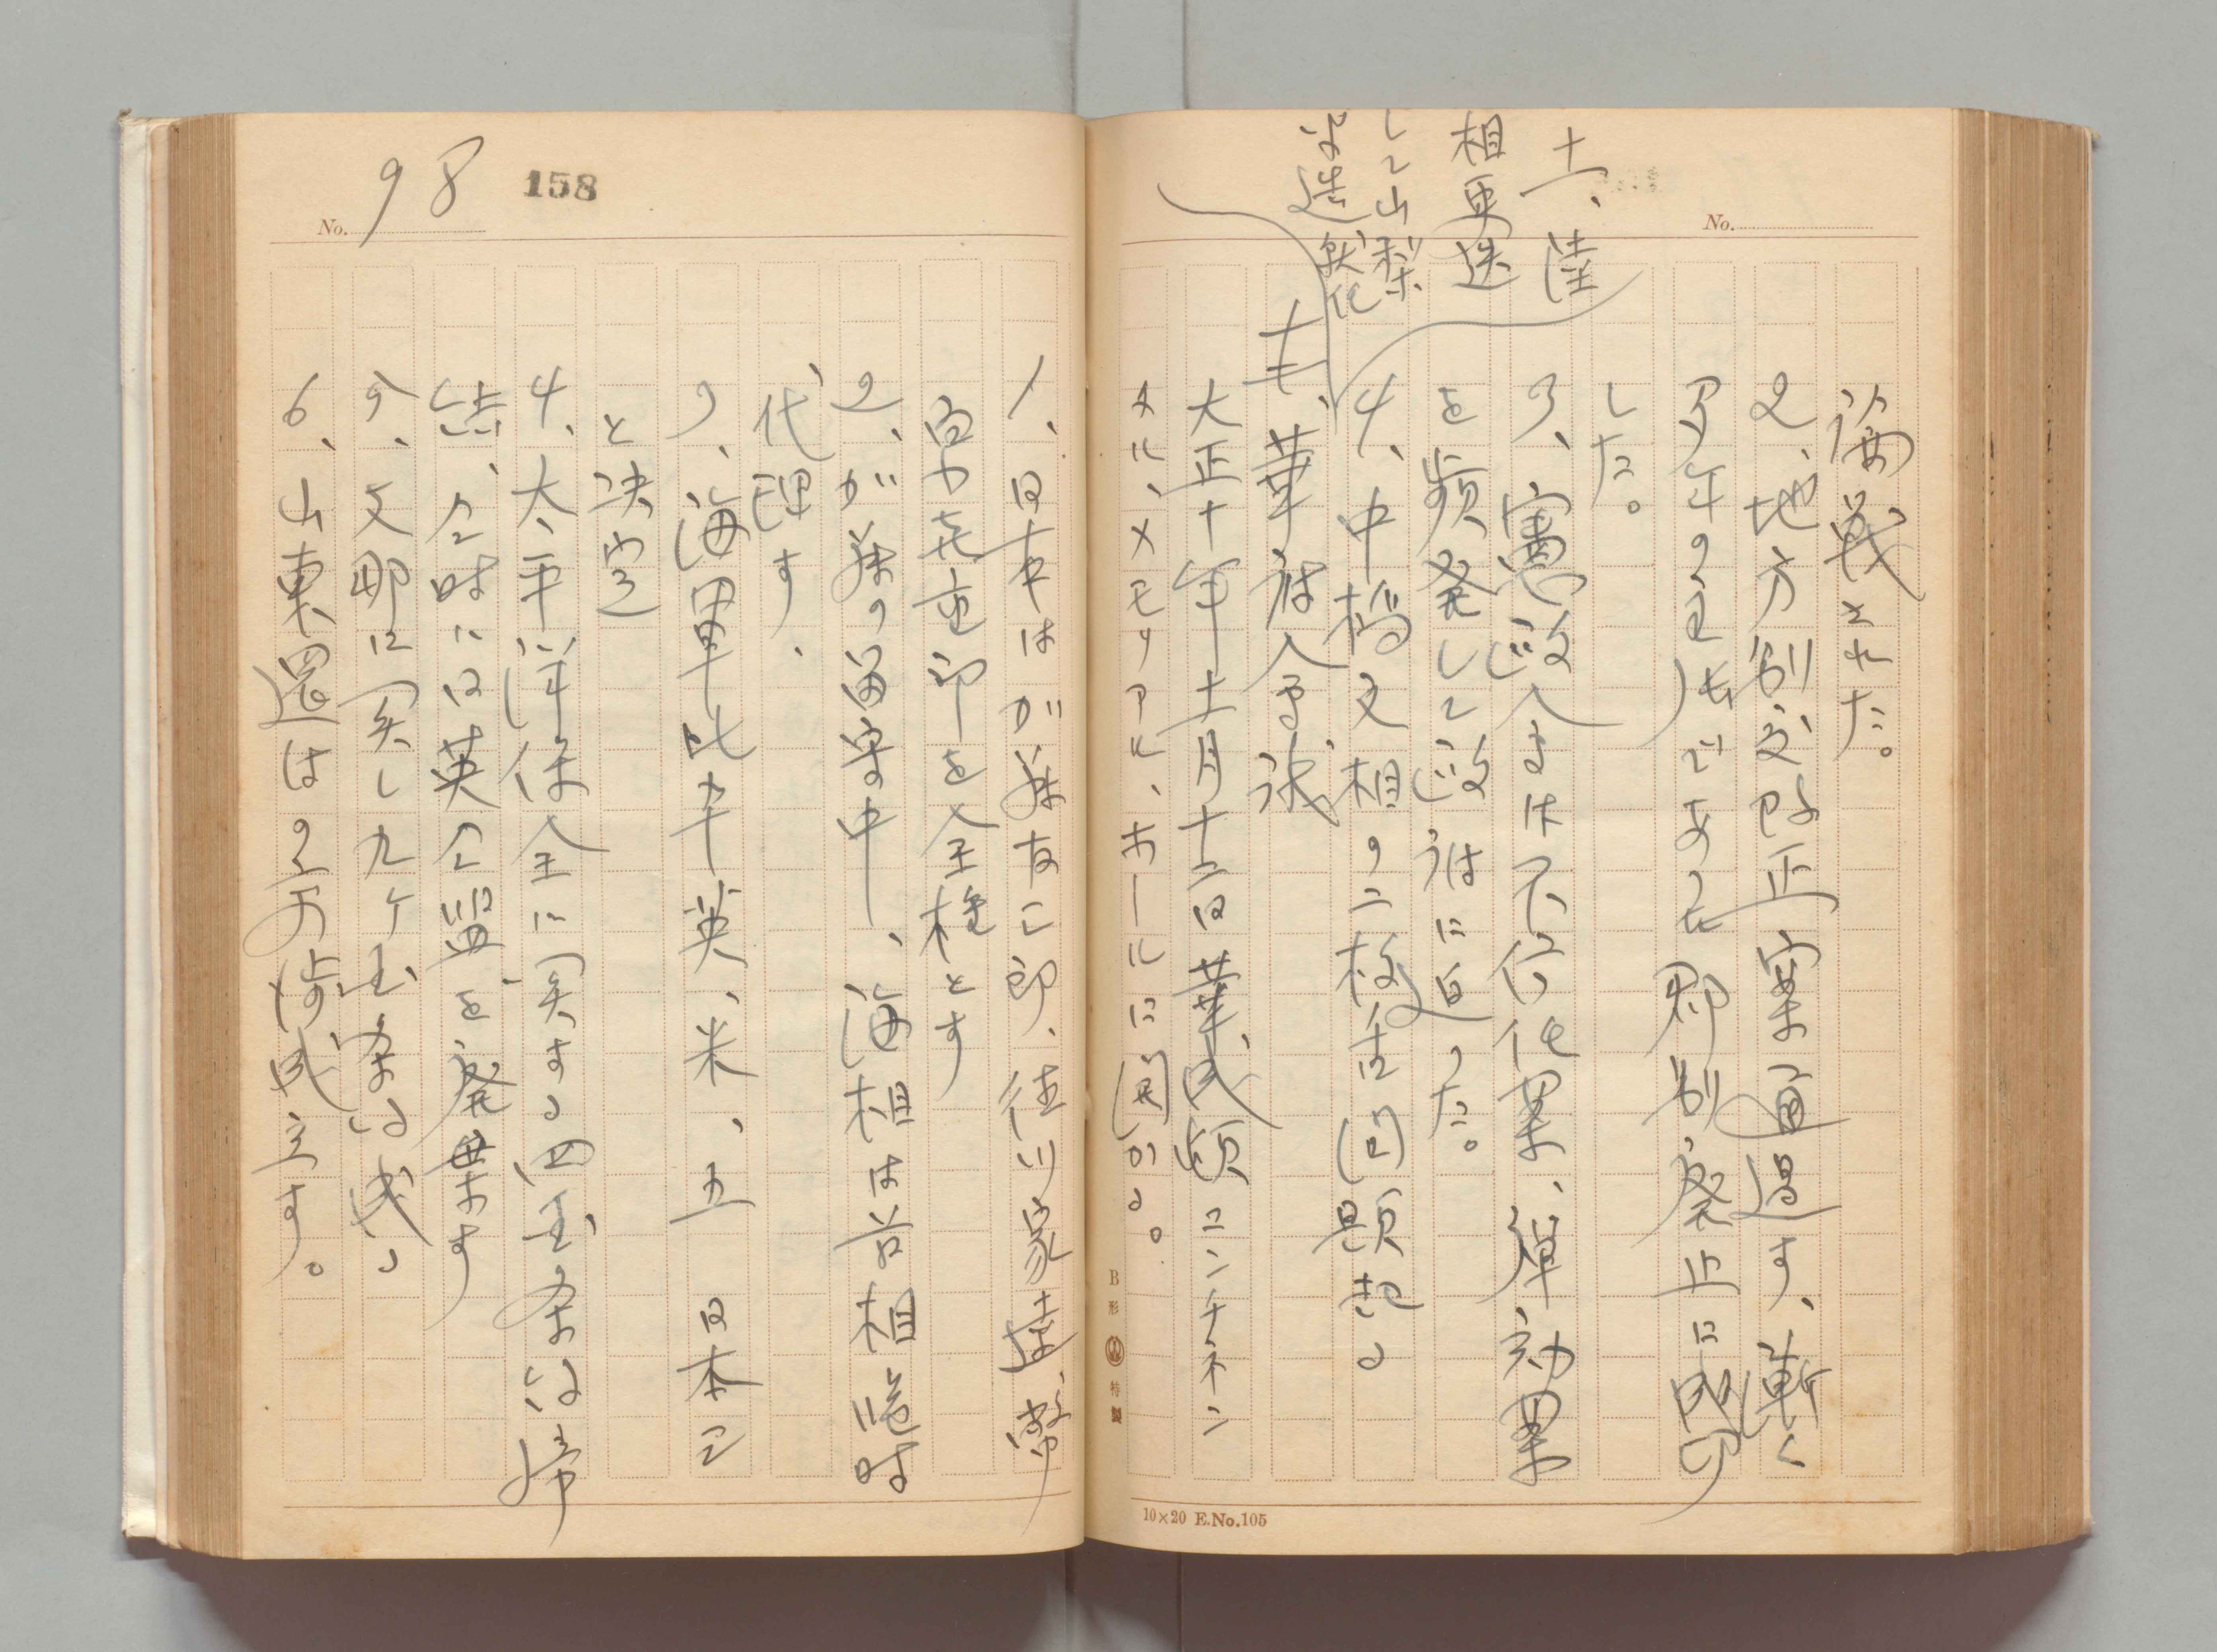 No.
論戦された。
2、地方制度改正案通過す、漸く
多年の主張であつた郡制廃止に成功
した。
3、憲政会は不信任案、弾劾案
を頻発して政治に迫つた。
4、中橋文相の二枚舌問題起る
十一、陸
相更迭
して山梨
半造
就任
十七、華府会議
大正十年十一月十二日華盛頓コンチネン
タル、メモリアル、ホールに開かる。
B形 特製
10×20 E.No.105
158
No. 98
1、日本は加藤友三郎、徳川家達、幣
原喜重郎を全権とす
2、加藤の留守中、海相は首相臨時
代理す、
3、海軍比率英、米、五 日本三
と決定
4、太平洋保全に関する四国条約締
結、同時に日英同盟を廃棄す
5、支那に関し九ケ国条約成る
6、山東還は